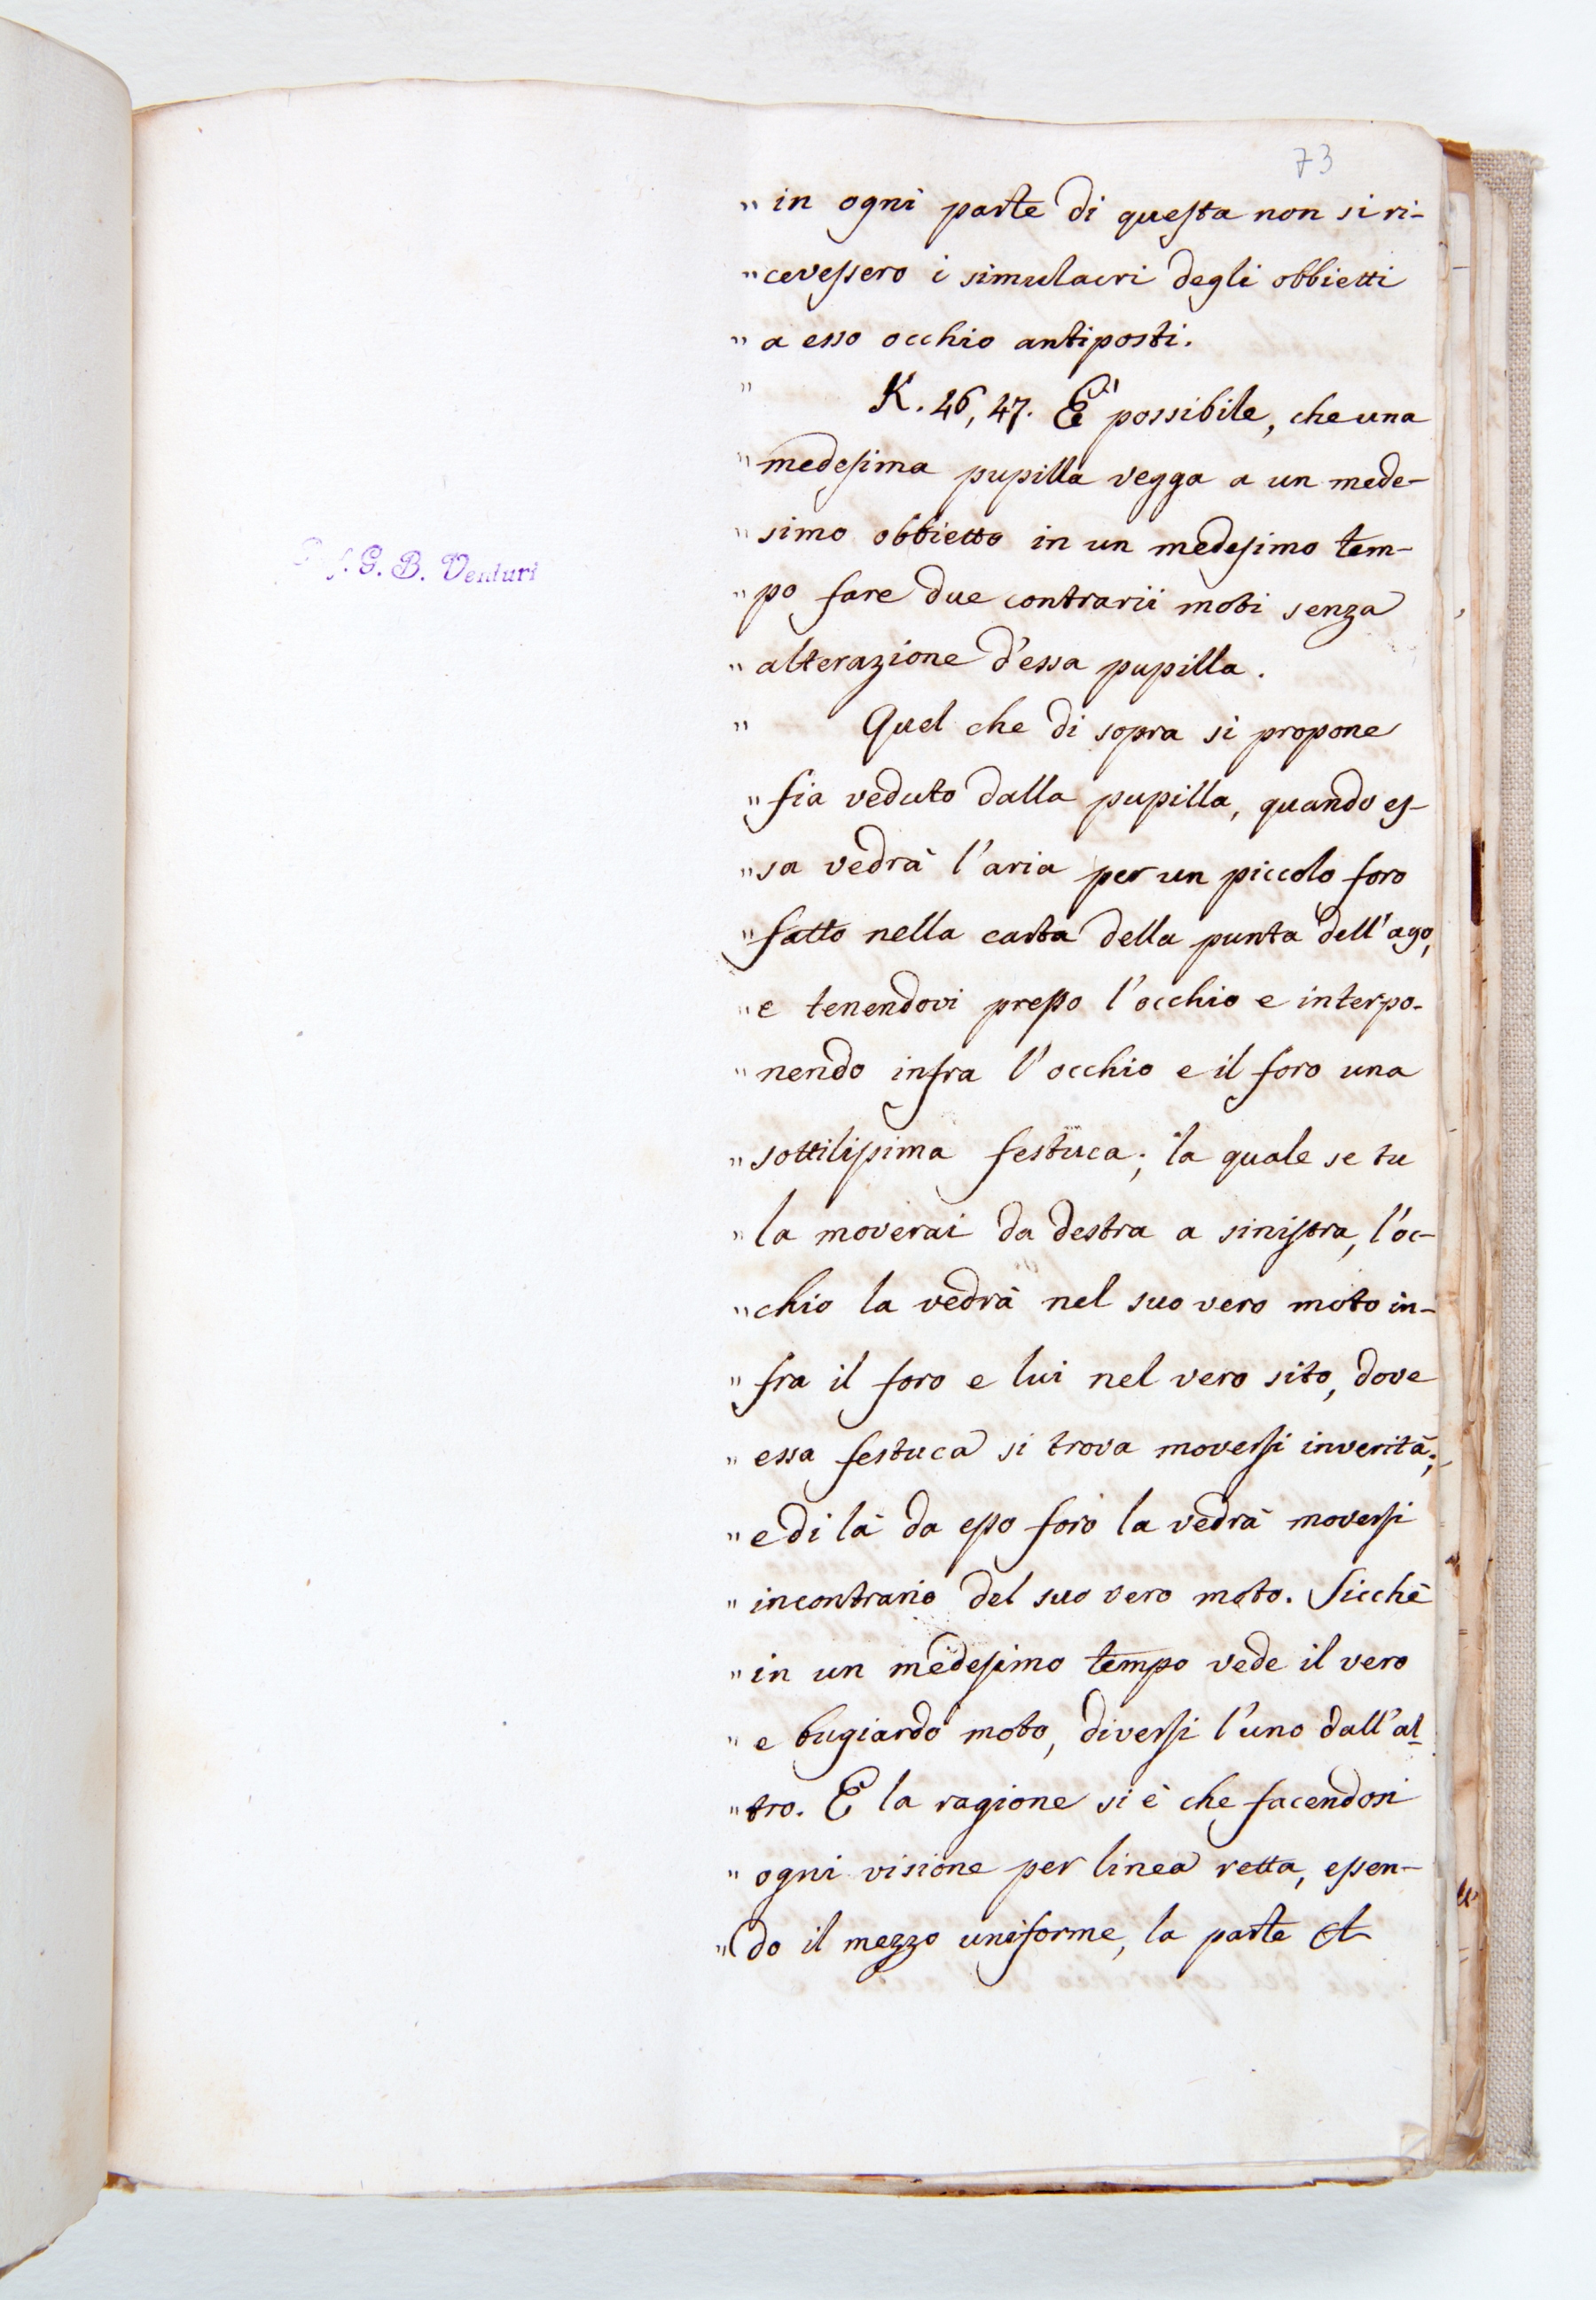 73
" in ogni parte di questa non si ri-
" cevessero i simulacri degli obbietti
" a esso occhio antiposti.
" K. 46, 47. È possibile, che una
" medesima pupilla vegga a un mede-
" simo obbietto in un medesimo tem-
" po fare due contrarii moti senza
" alterazione d'essa pupilla.
" Quel che di sopra si propone
" fia veduto dalla pupilla, quando es-
" sa vedrà l'aria per un piccolo foro
" fatto nella carta della punta dell'ago,
" e tenendovi presso l'occhio e interpo-
" nendo infra l'occhio e il foro una
" sottilissima festuca; la quale se tu
" la moverai da destra a sinistra, l'oc-
" chio la vedrà nel suo vero moto in-
" fra il foro e lui nel vero sito, dove
" essa festuca si trova moversi in verità;
" e di là da esso foro la vedrà moversi
" incontrario del suo vero moto. Sicchè
" in un medesimo tempo vede il vero
" e bugiardo moto, diversi l'uno dall'al-
" tro. E la ragione si è che facendosi
" ogni visione per linea retta, essen-
" do il mezzo uniforme, la parte A
G. B. Venturi